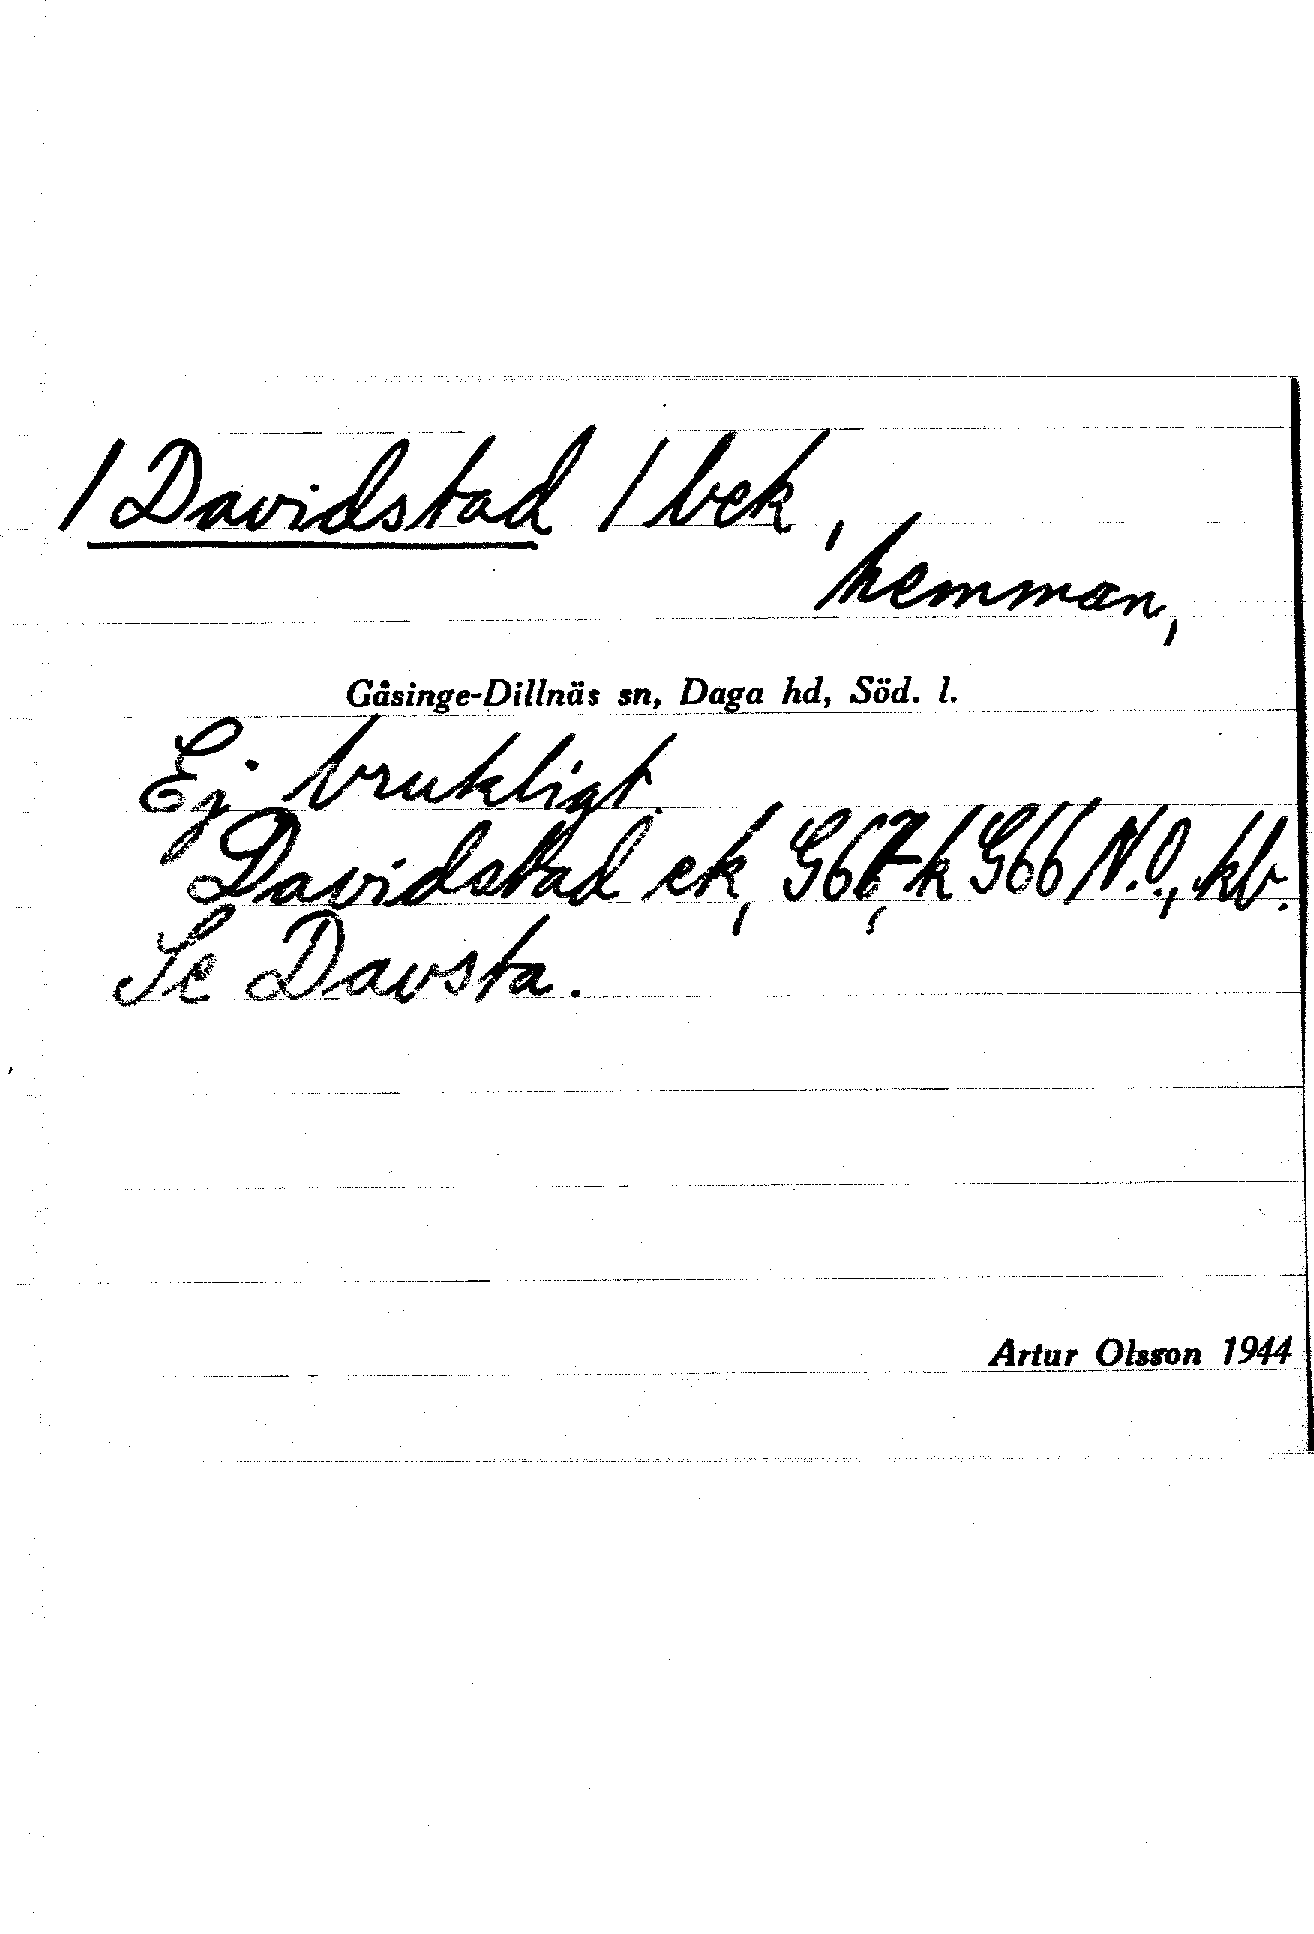 / Davidstad / bek,
hemman,
Gåsinge-Dillnäs sn, Daga hd, Söd. l.
Ej brukligt.
Davidstad ek, G67, k G66 N.O., kb.
Se Davsta.
Artur Olsson 1944